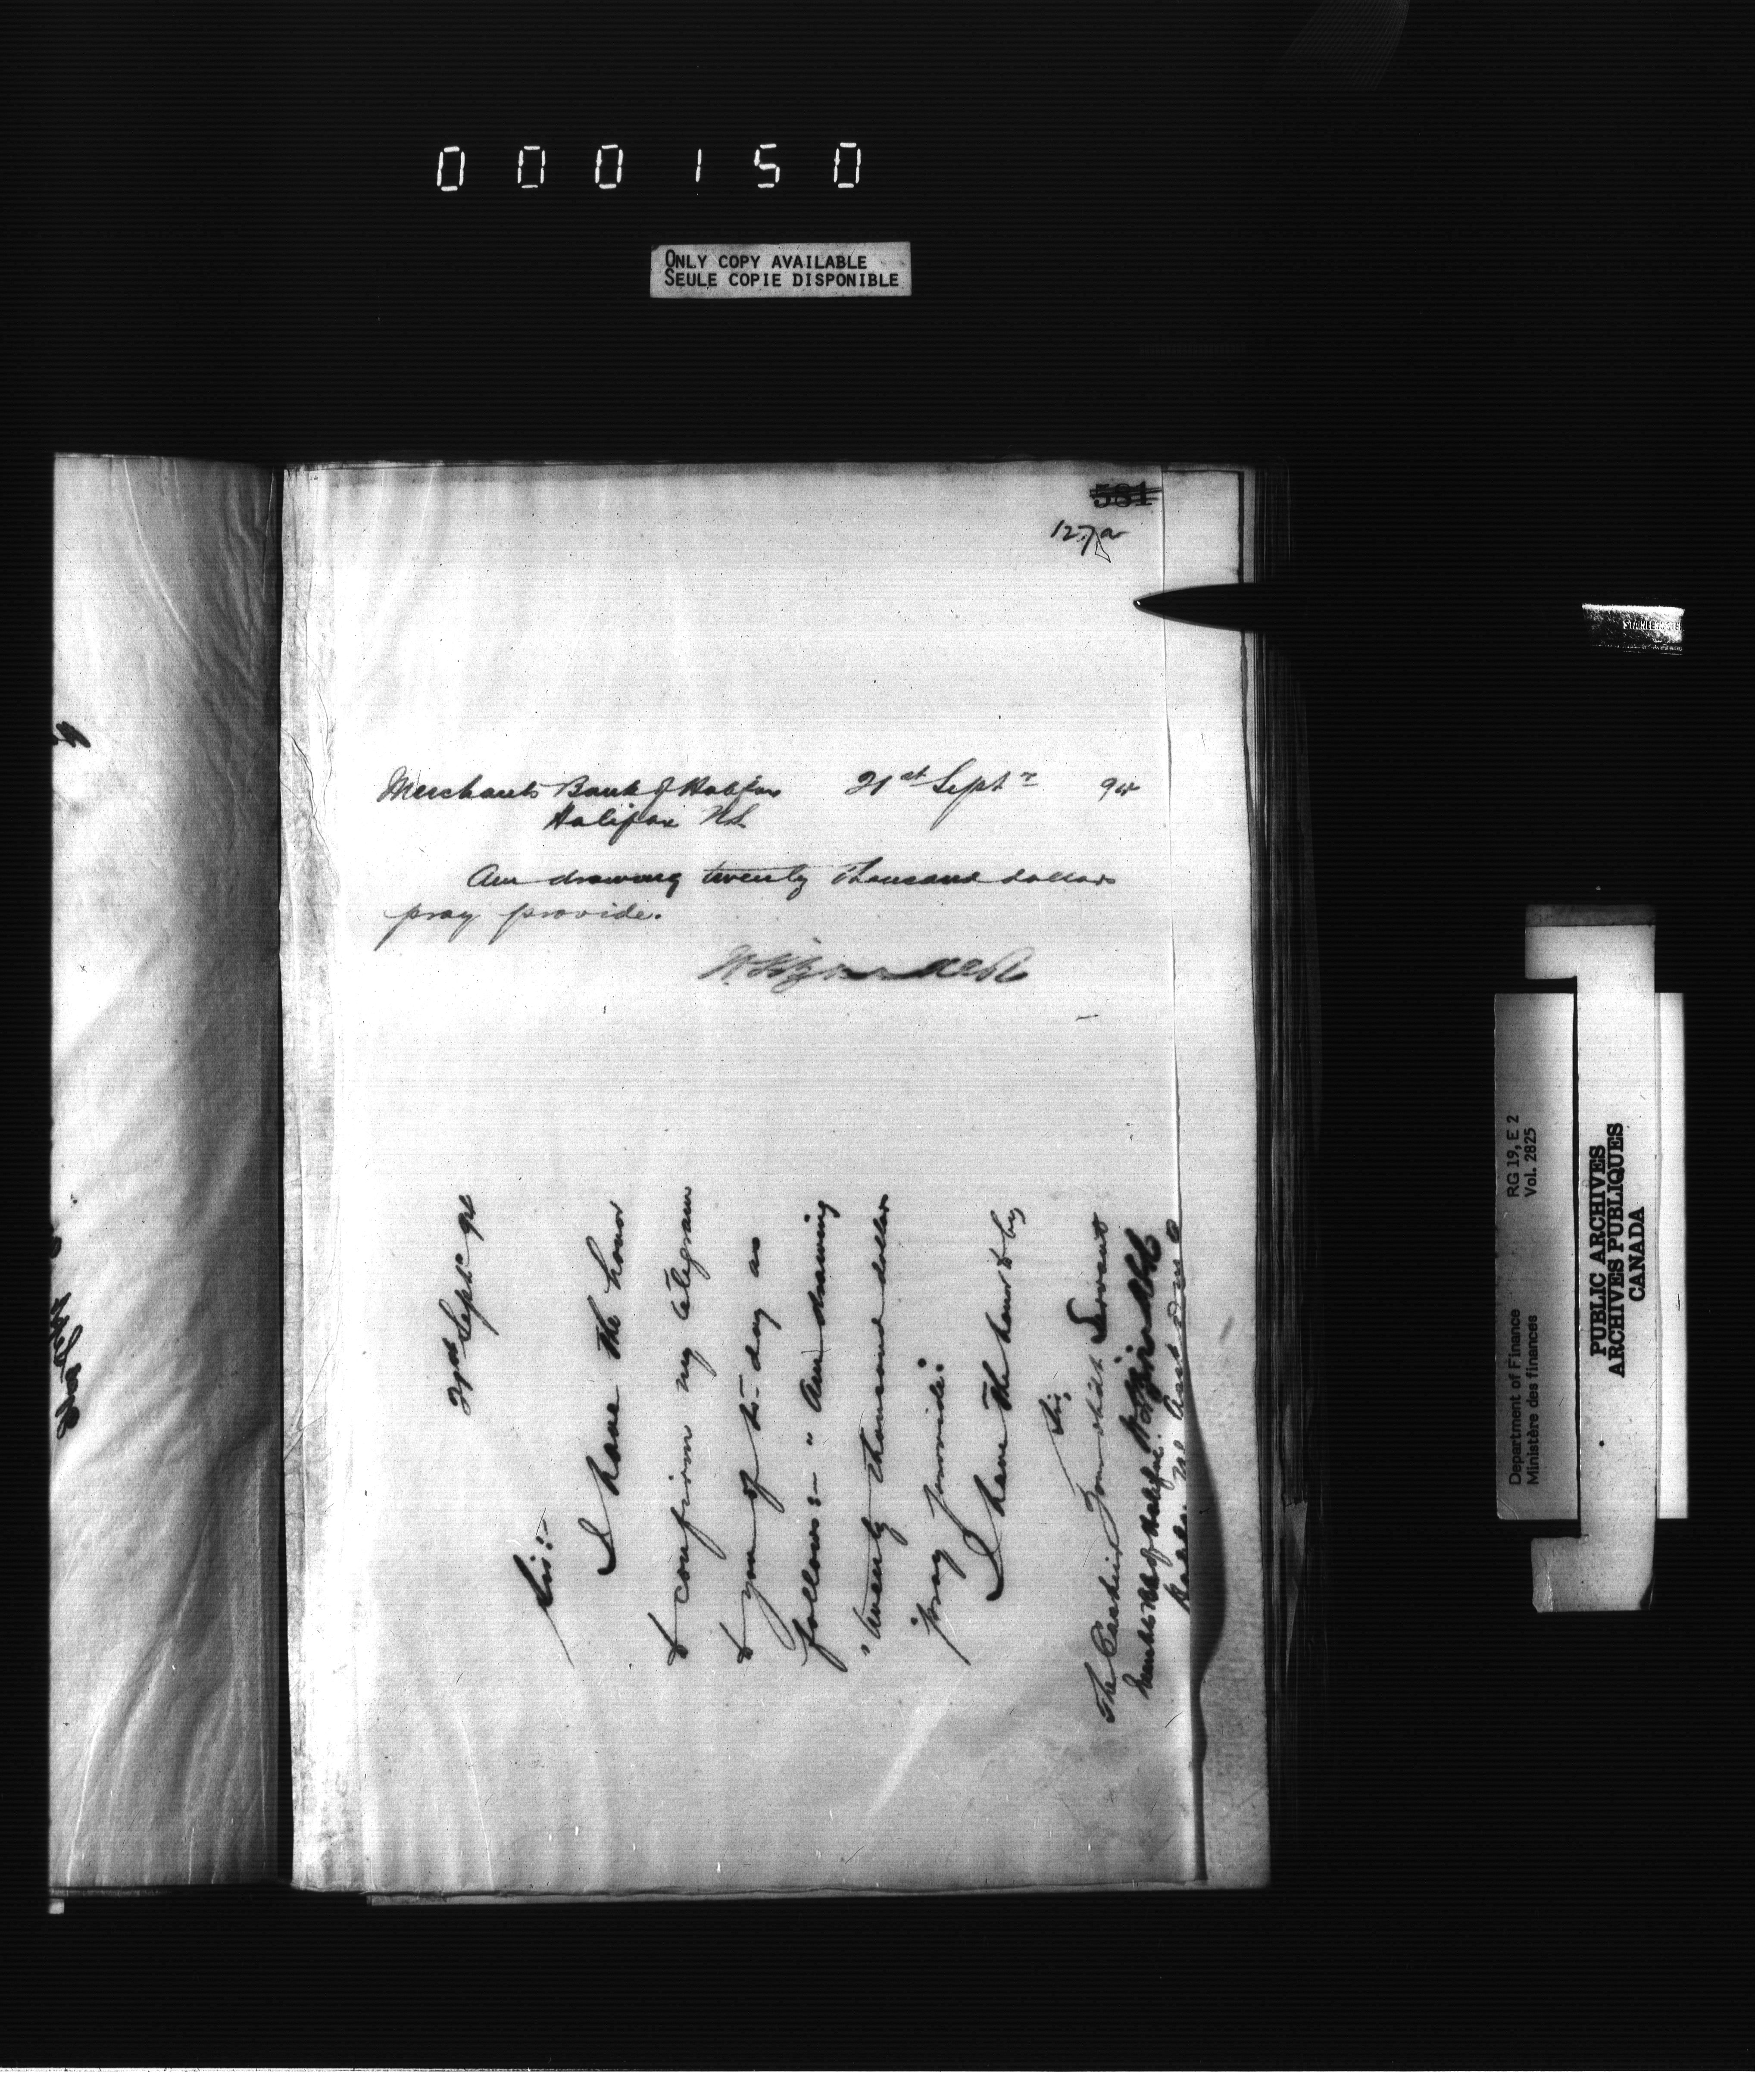 000150
ONLY COPY AVAILABLE
SEULE COPIE DISPONIBLE
581
127a
Merchants Bank of Halifax 21st Septr 94
Halifax NS
Am drawing twenty thousand dollars
pray provide.
21st Septr 94
Sir:-
I have the honor
to confirm my telegram
to you of to-day as
follows:- "Am drawing
"twenty thousand dollars
"pray provide."
I have the honor to be,
Sir,
Your obdt Servant
The Cashier
Merchts Bk of Halifax
Halifax NS Asst
STAINLESS
Department of Finance RG 19, E 2
Ministère des finances Vol. 2825
PUBLIC ARCHIVES
ARCHIVES PUBLIQUES
CANADA